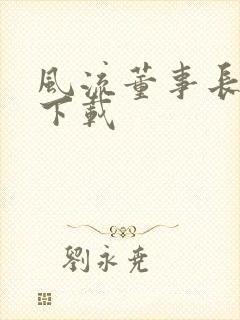 風流董事長
下載
劉永堯